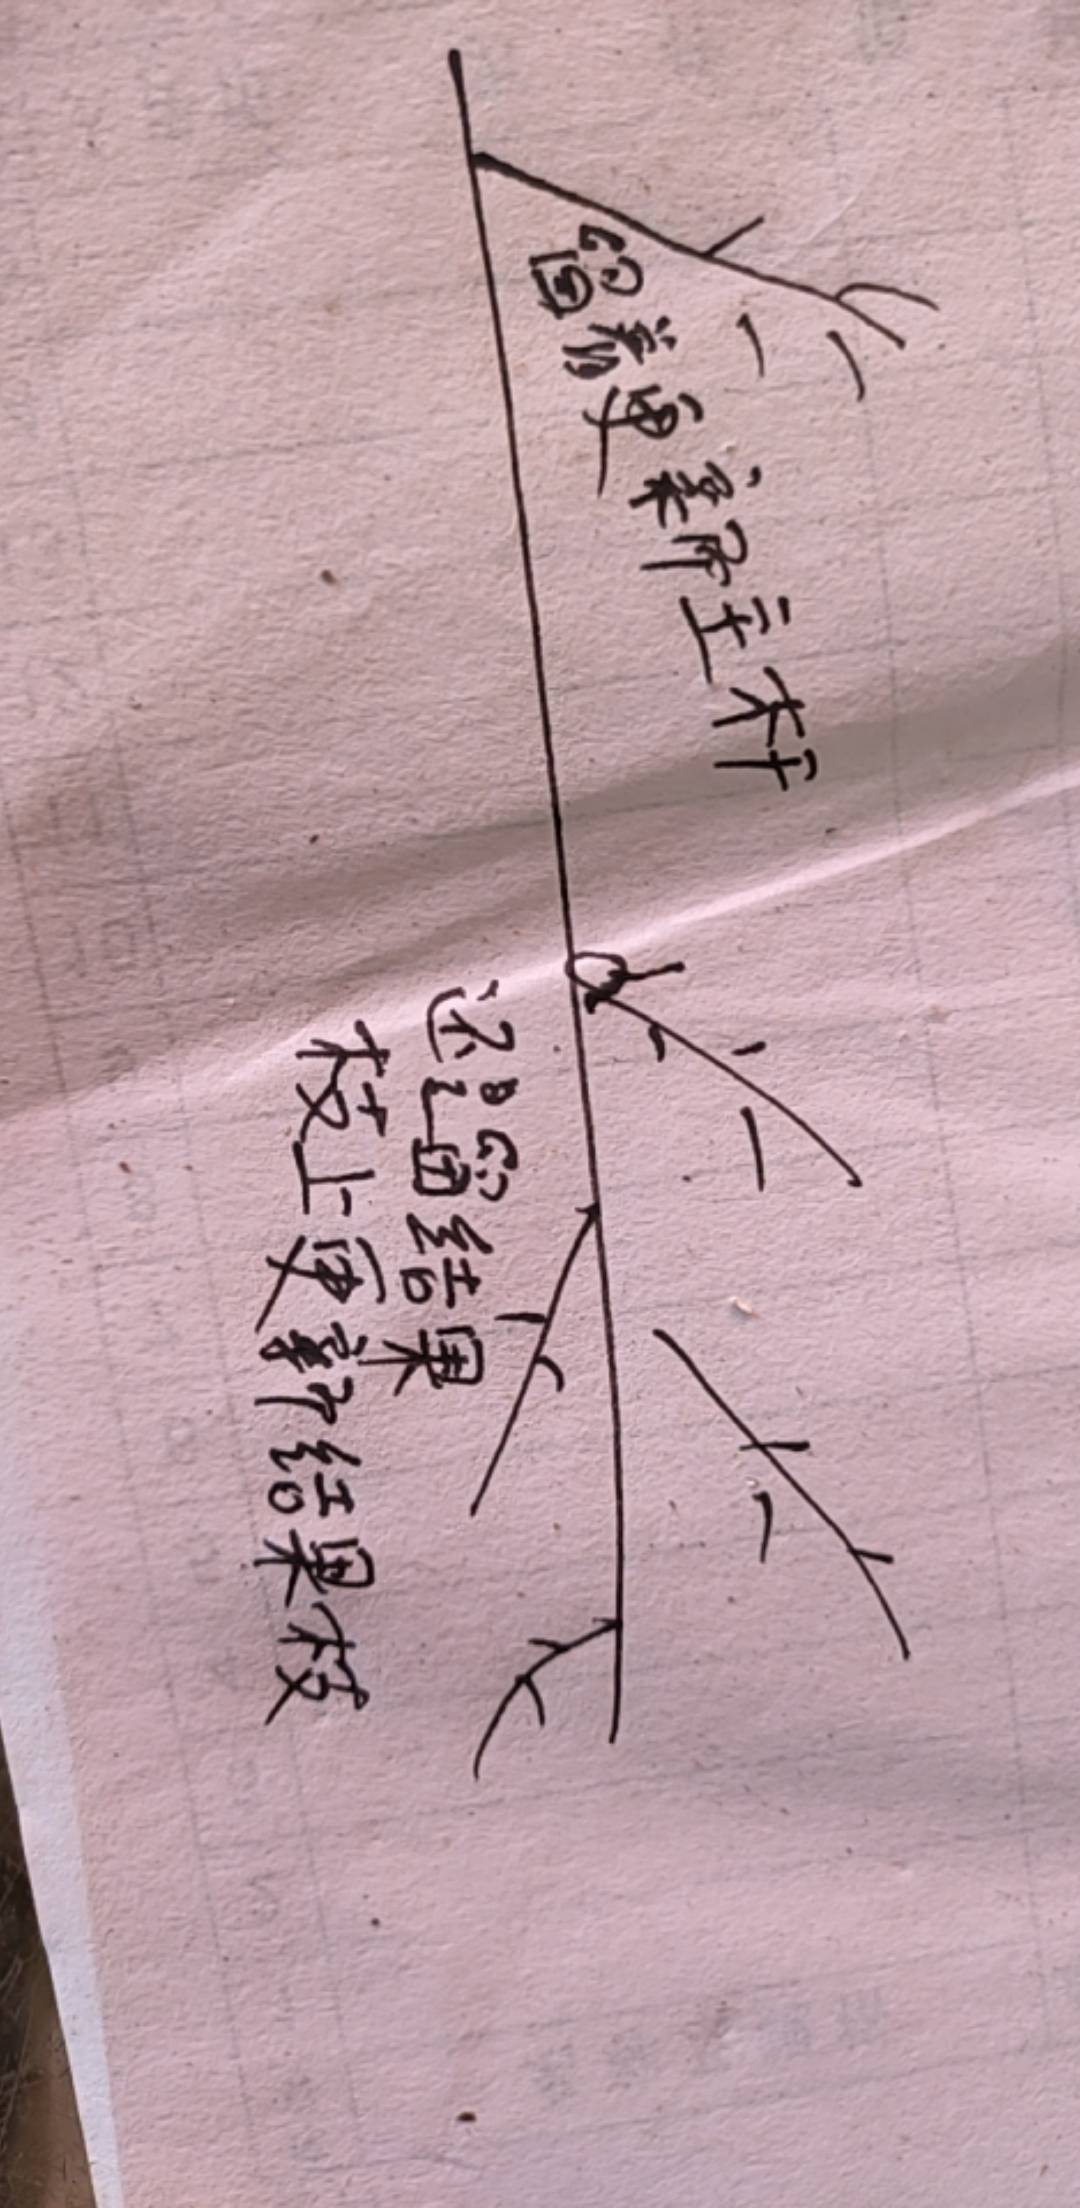 留着更新主杆
还是留结果
枝上更新结果枝